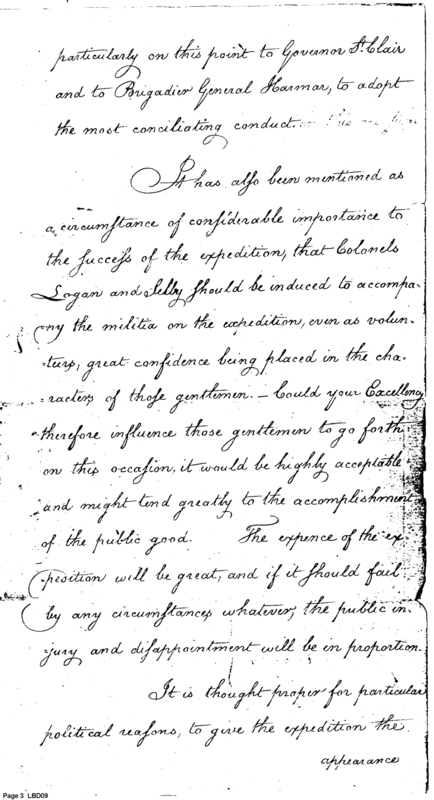 particularly on this point to Governor St. Clair
and to Brigadier General Harmar, to adopt
the most conciliating conduct.
It has also been mentioned as
a circumstance of considerable importance to
the success of the expedition, that Colonels
Logan and Selby should be induced to accompa-
ny the militia on the expedition, even as volun-
-turs, great confidence being placed in the cha-
-racters of those gentlemen. — Could your Excellency
therefore influence those gentlemen to go forth
on this occasion, it would be highly acceptable
and might tend greatly to the accomplishment
of the public good. The expence of the ex-
pedition will be great, and if it should fail
by any circumstances whatever, the public in-
-jury and disappointment will be in proportion.
It is thought proper for particular
political reasons, to give the expedition the
appearance
Page 3 LBD09